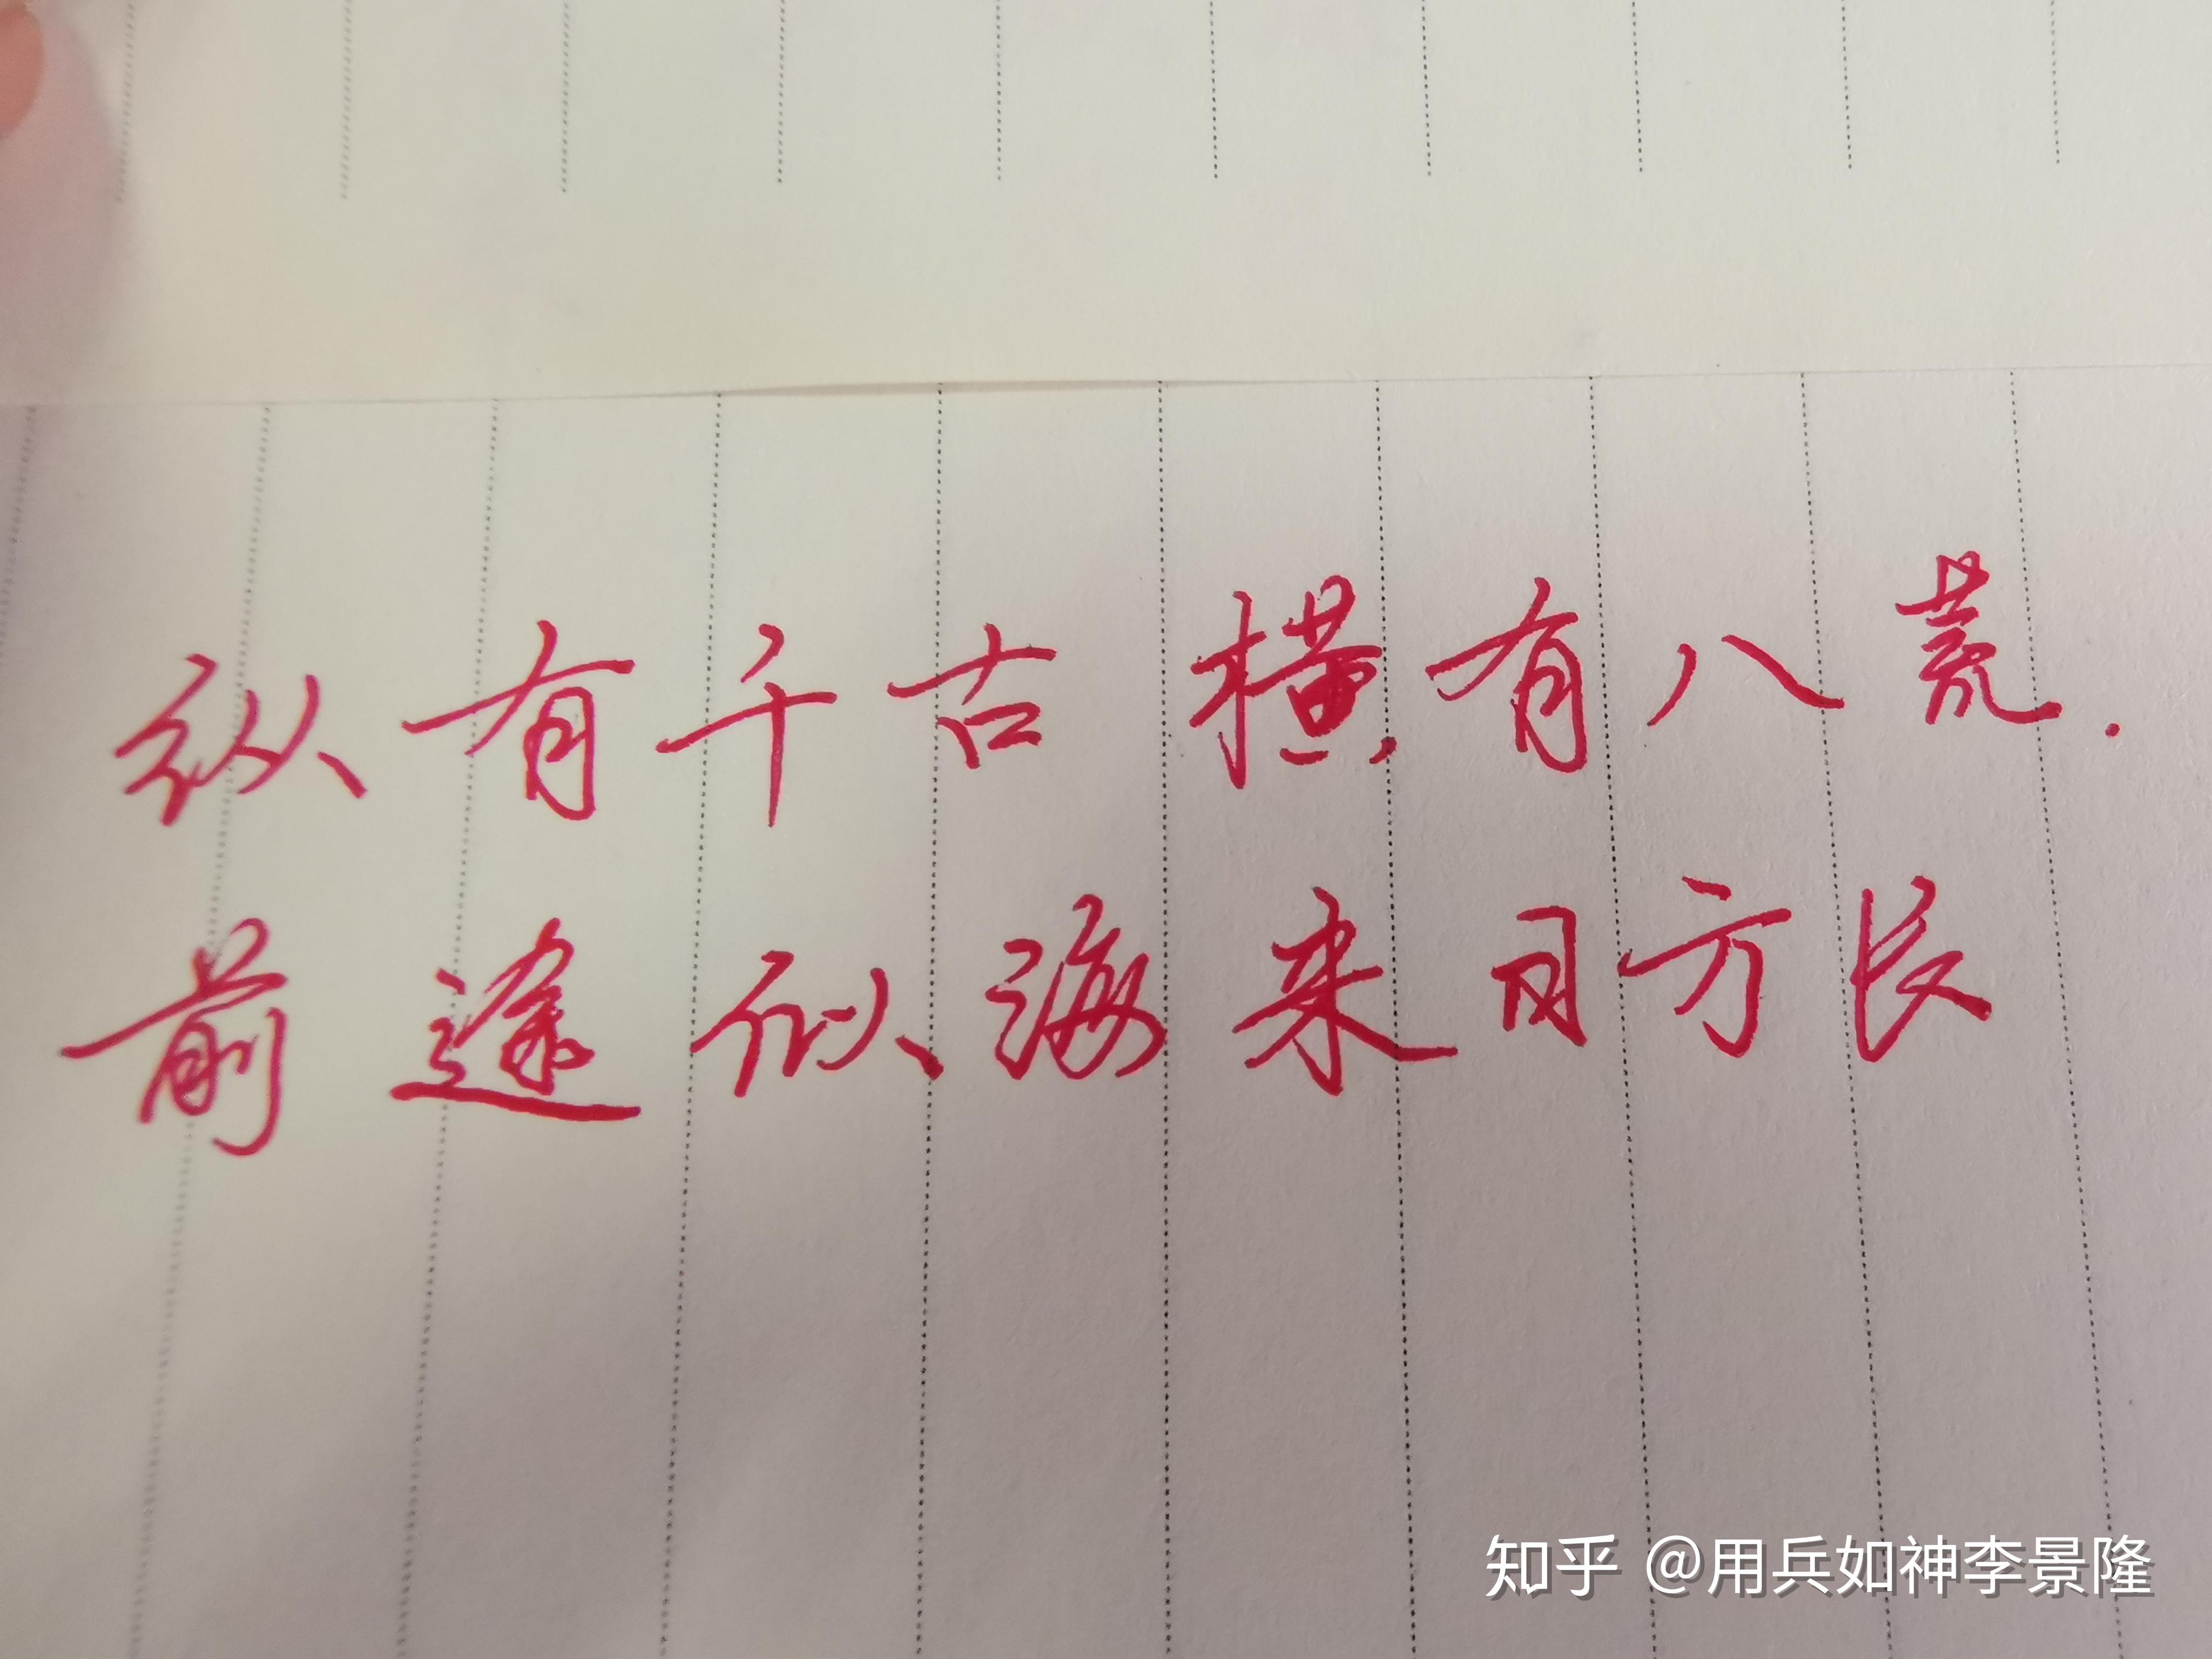 纵有千古横有八荒.
前途似海来日方长
知乎 @用兵如神李景隆